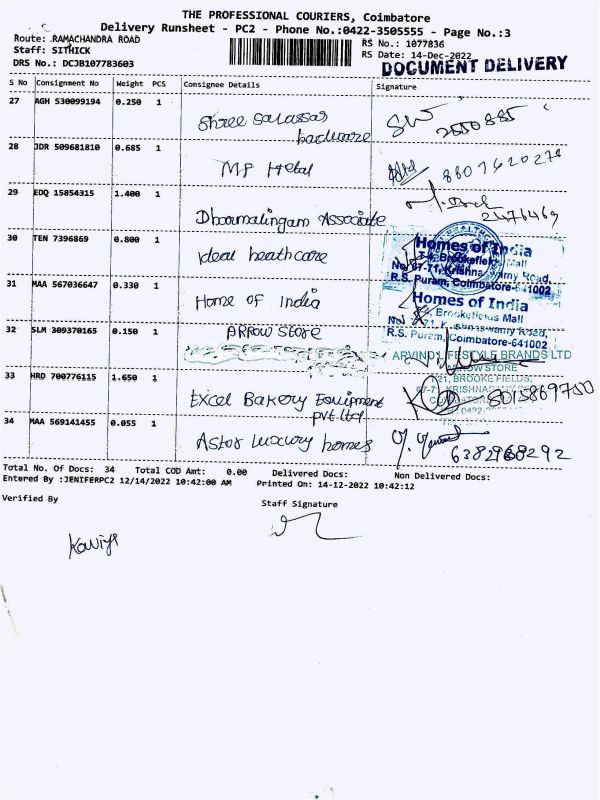 THE PROFESSIONAL COURIERS, Coimbatore
Delivery Runsheet - PC2 - Phone No.:0422-3505555 - Page No.:3
Route: RAMACHANDRA ROAD
Staff: SITHICK
DRS No.: DCJB107783603
RS No.: 1077836
RS Date: 14-Dec-2022
DOCUMENT DELIVERY
S No Consignment No Weight PCS Consignee Details Signature
27 AGH 530099194 0.250 1
Shree Salassar hardware
28 JDR 509681810 0.685 1
MP Hetal
8807620278
29 EDQ 15854315 1.400 1
Dharmalingam Associate
2476469
30 TEN 7396869 0.800 1
Ideal heathcare
Homes of India
R.S. Puram, Coimbatore-641002
31 MAA 567036647 0.330 1
Home of India
Homes of India
Brookefields Mall
R.S. Puram, Coimbatore-641002
32 SLM 309370165 0.150 1
ARROW STORE
ARVIND LIFESTYLE BRANDS LTD
33 HRD 700776115 1.650 1
Excel Bakery Equipment
pvt ltd
8015869750
34 MAA 569141455 0.055 1
Astor luxury homes
Total No. Of Docs: 34 Total COD Amt: 0.00 Delivered Docs: Non Delivered Docs:
Entered By :JENIFERPC2 12/14/2022 10:42:00 AM Printed On: 14-12-2022 10:42:12
Verified By
Staff Signature
Kaviya